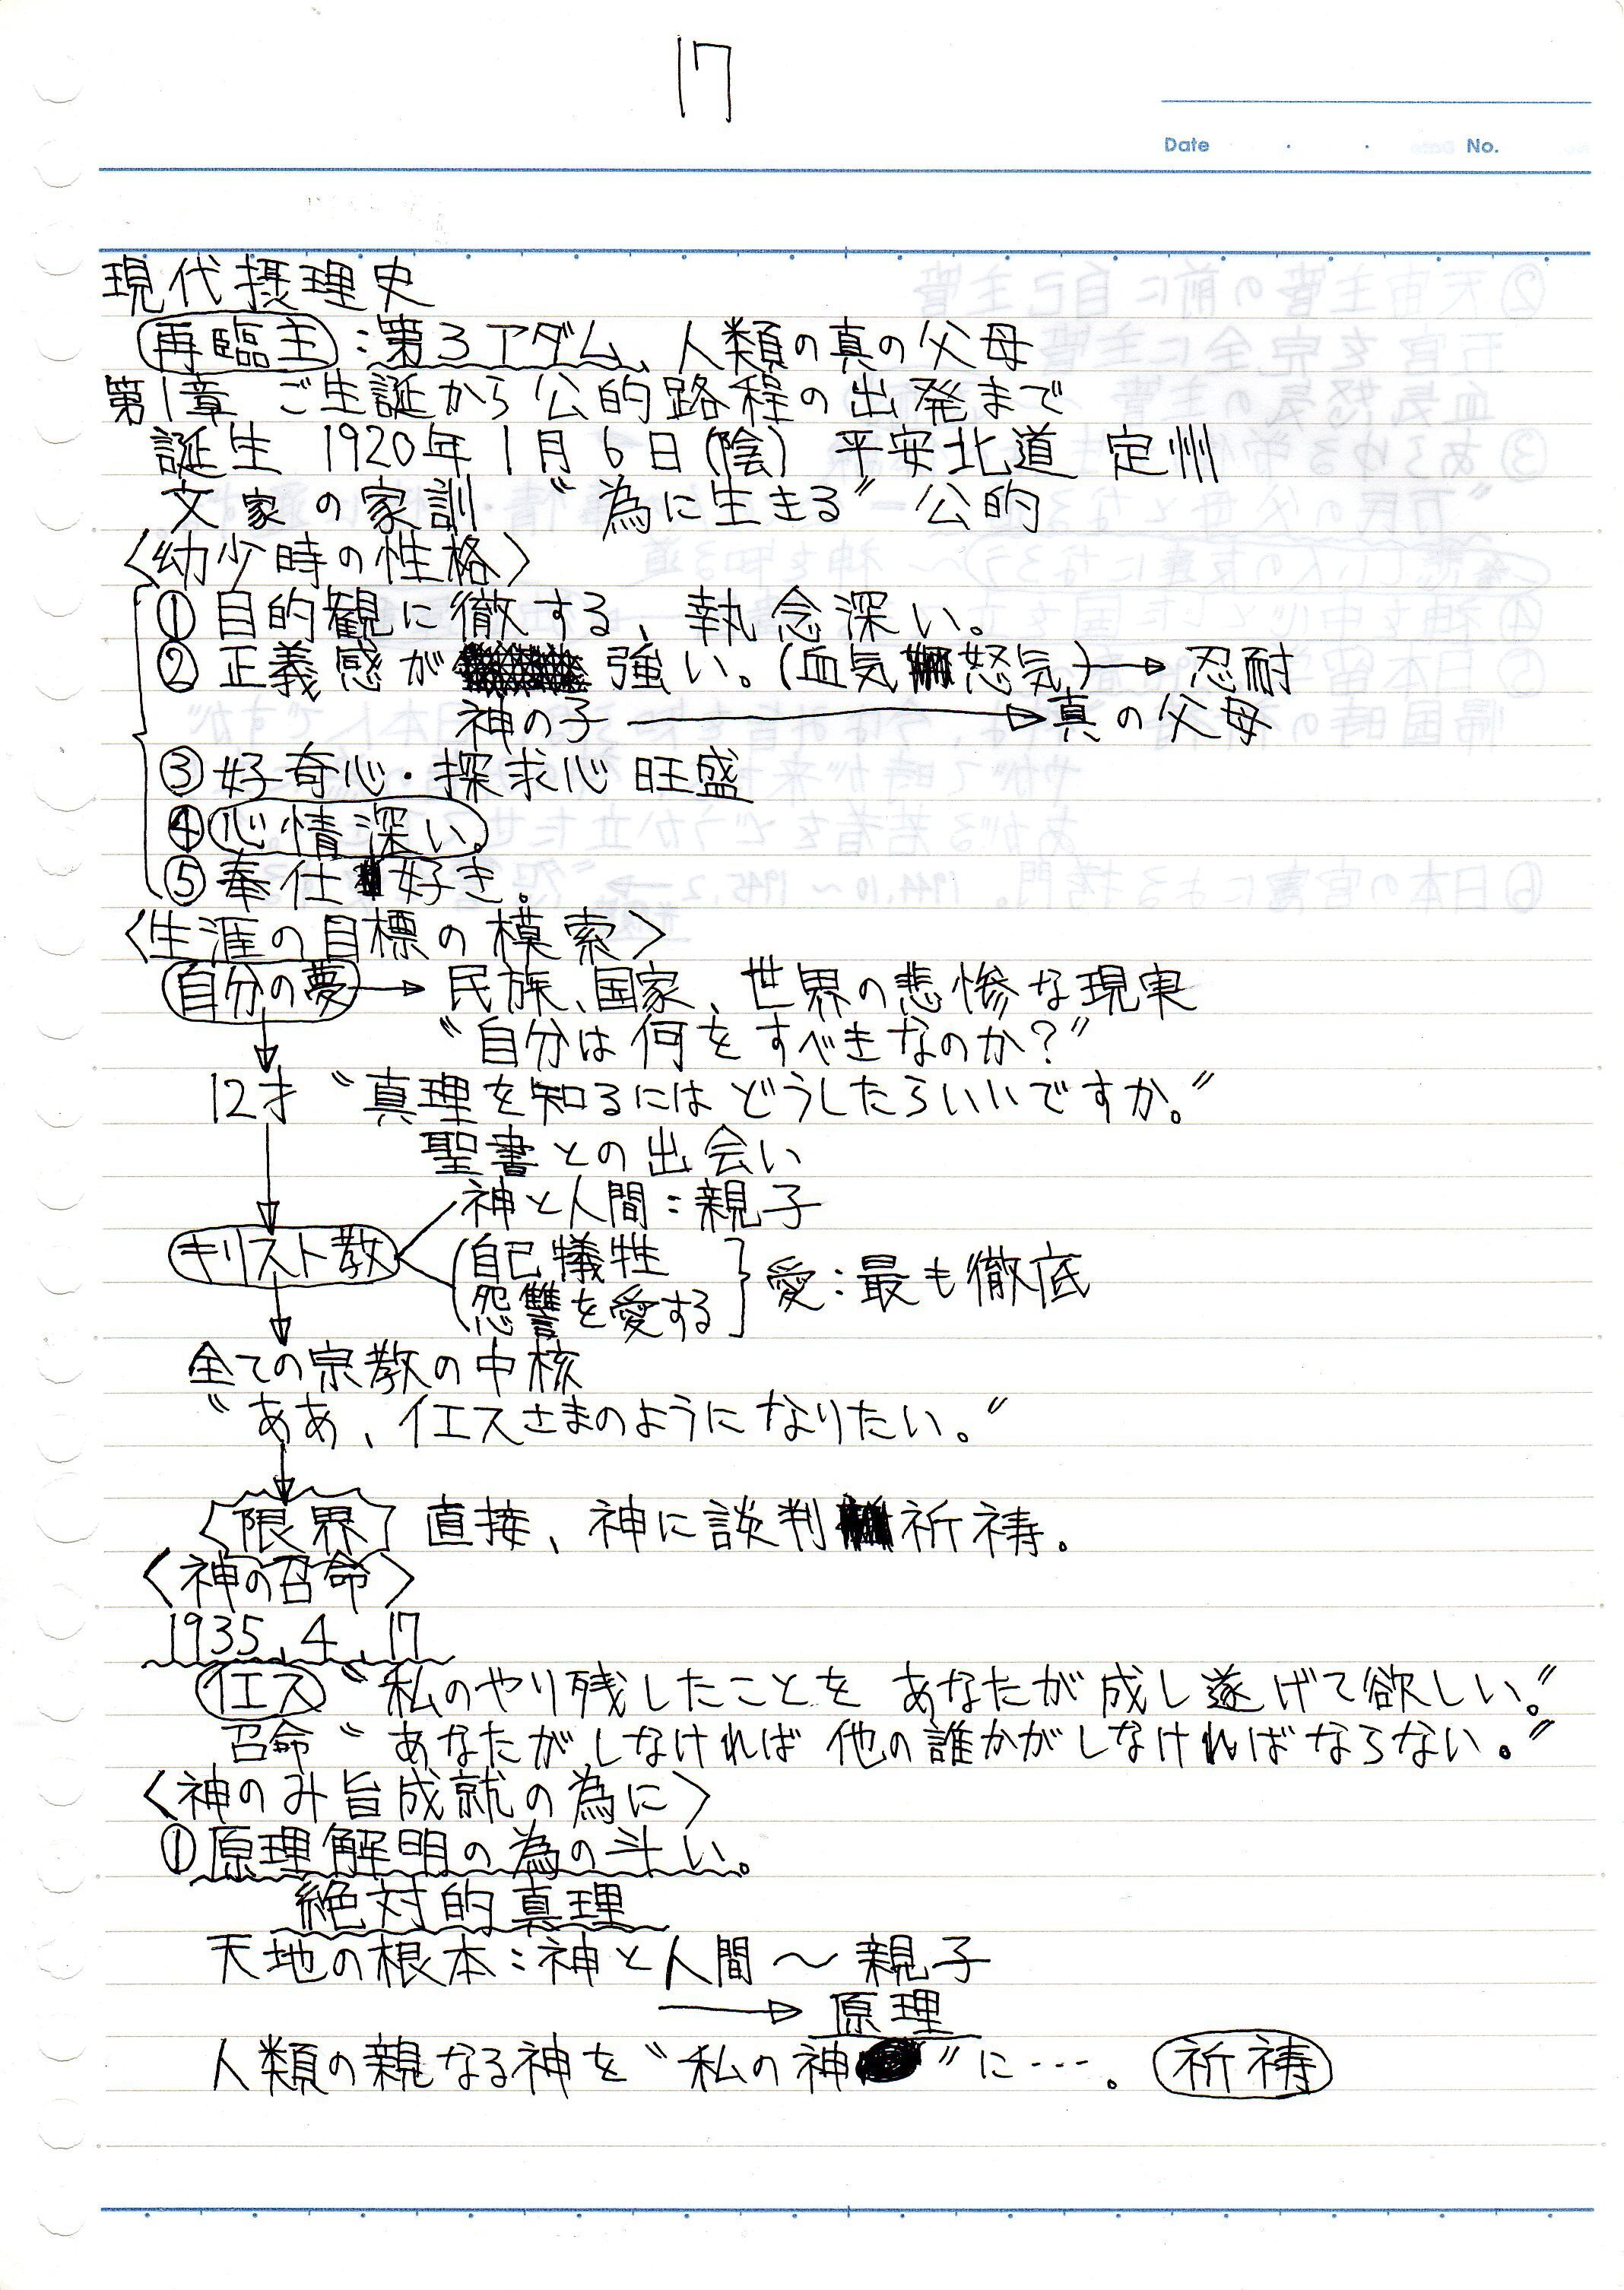 17
Date ・ ・ No.
現代摂理史
再臨主：第3アダム、人類の真の父母
第1章 ご生誕から公的路程の出発まで
誕生 1920年1月6日(陰) 平安北道 定州
文家の家訓 〝為に生きる〞 公的
〈幼少時の性格〉
① 目的観に徹する、執念深い。
② 正義感が 強い。(血気 怒気)→ 忍耐
神の子 → 真の父母
③ 好奇心・探求心 旺盛
④ 心情深い。
⑤ 奉仕 好き。
〈生涯の目標の模索〉
自分の夢 → 民族、国家、世界の悲惨な現実
〝自分は何をすべきなのか？〞
12才 〝真理を知るには どうしたらいいですか。〞
聖書との出会い
神と人間：親子
キリスト教
自己犠牲
怨讐を愛する
愛：最も徹底
全ての宗教の中核
〝ああ、イエスさまのようになりたい。〞
限界 直接、神に談判 祈祷。
〈神の召命〉
1935、4、17
イエス 〝私のやり残したことを あなたが成し遂げて欲しい。〞
召命 〝あなたがしなければ 他の誰かがしなければならない。〞
〈神のみ旨成就の為に〉
① 原理解明の為の斗い。
絶対的真理
天地の根本：神と人間 〜 親子
→ 原理
人類の親なる神を〝私の神 〞に…。 祈祷